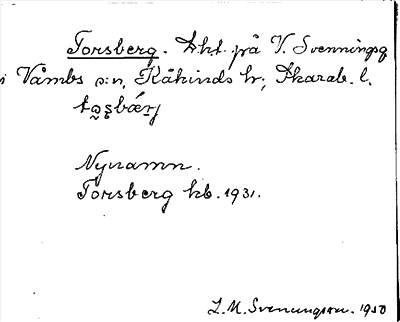 Torsberg. Lht. på V. Svenningsg
i Våmbs s:n, Kåkinds hr; Skarab. l.
to̰ʂbæ̀rj
Nynamn.
Torsberg kb. 1931.
L. M. Svenungson. 1950